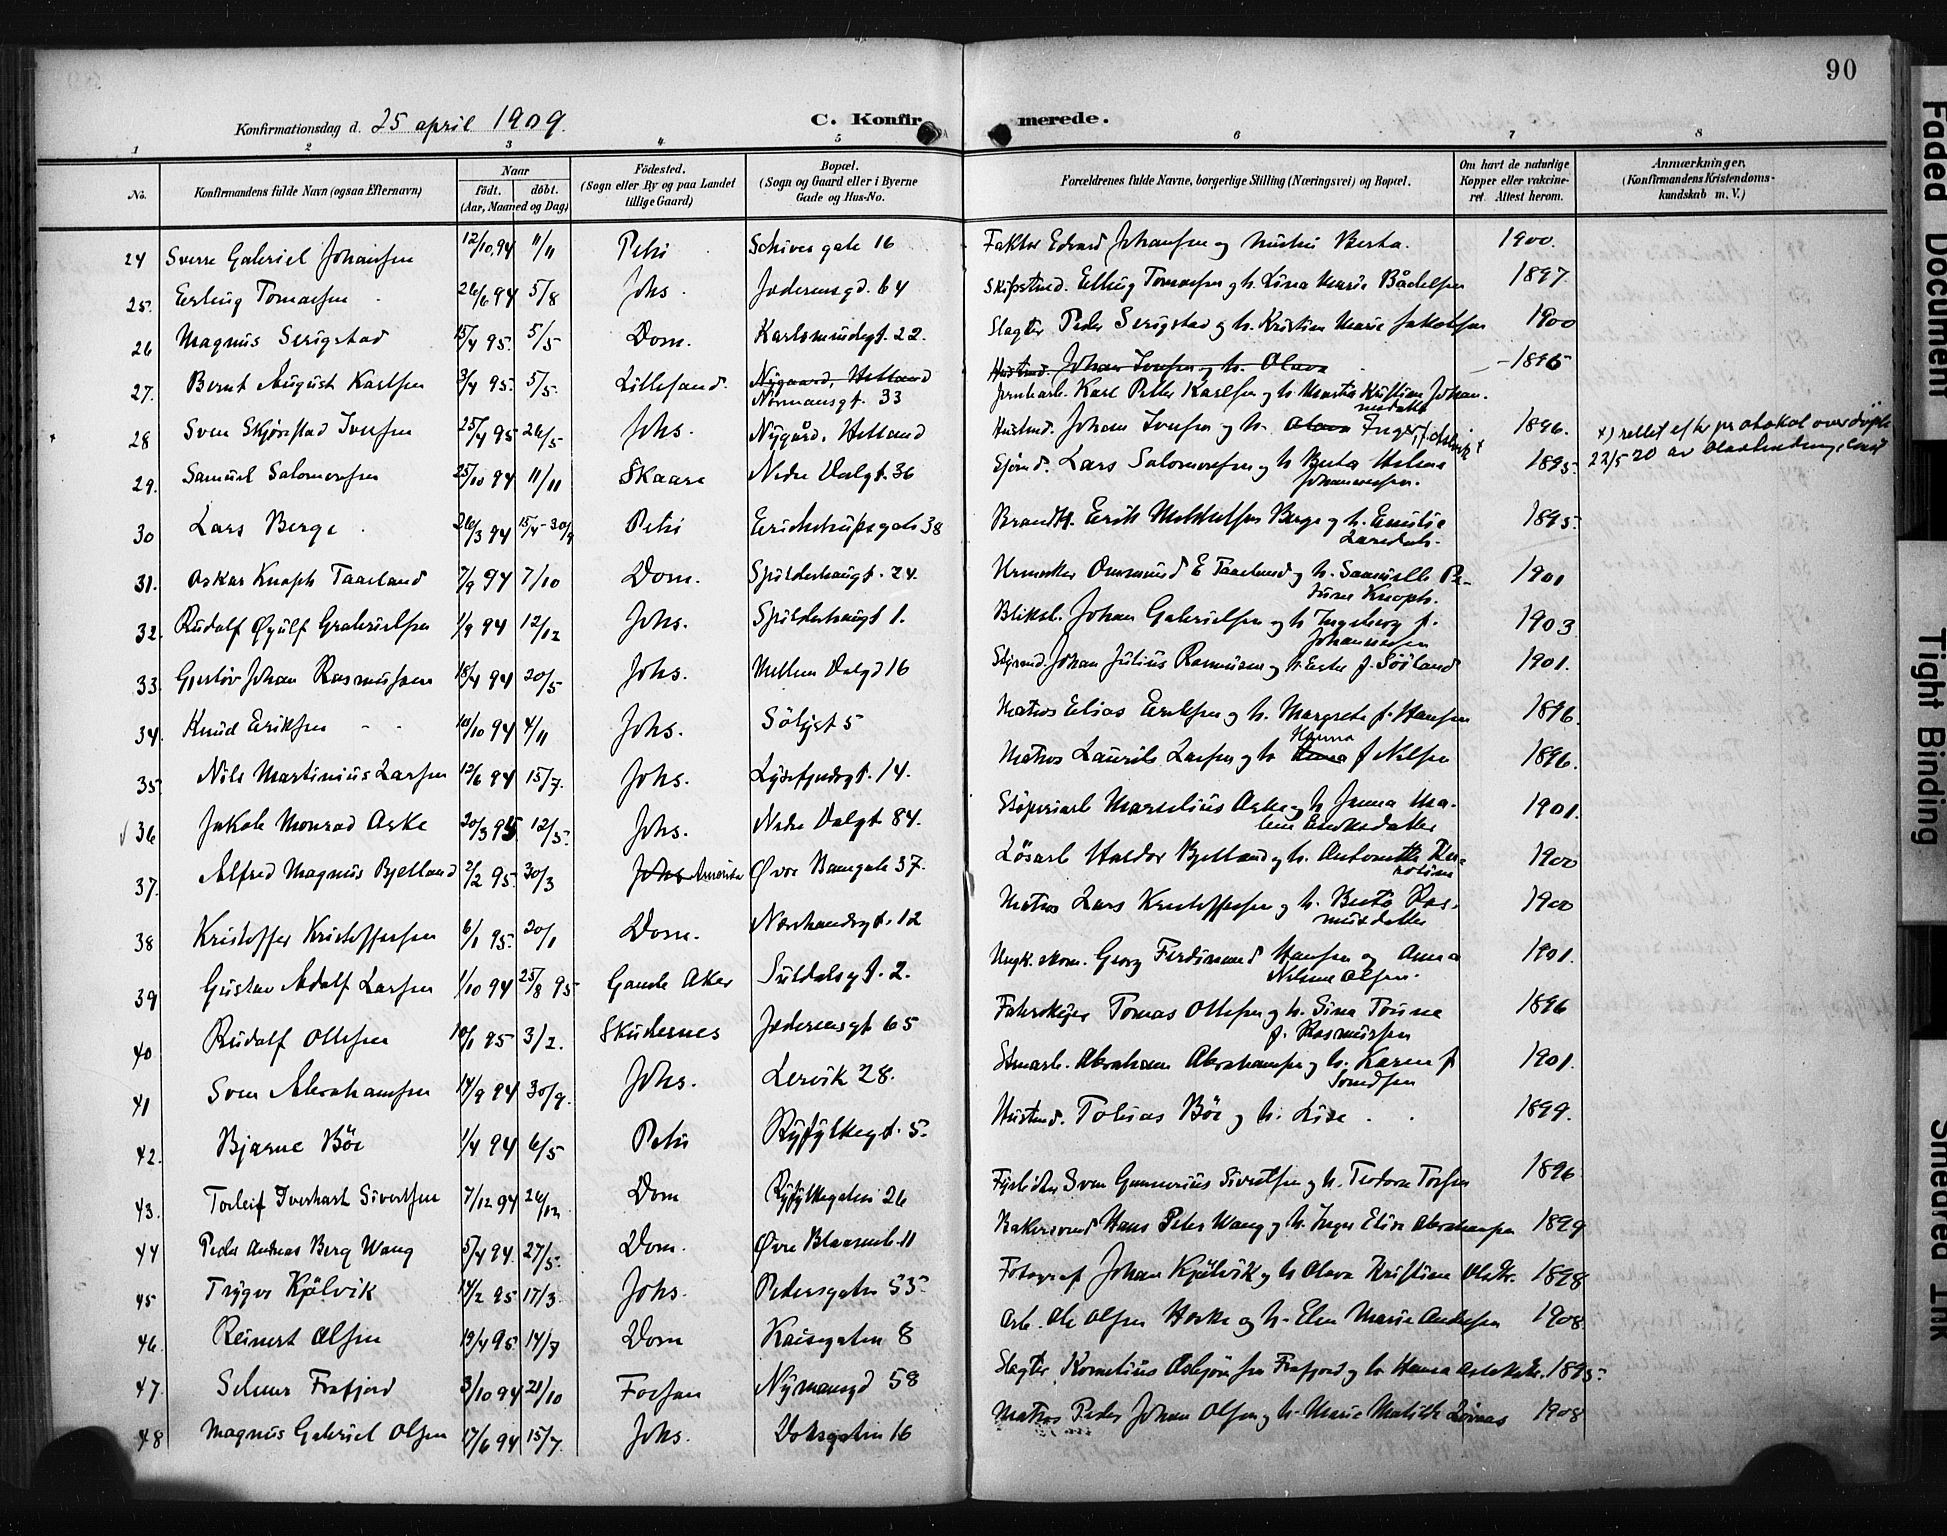 90
Konfirmationsdag d. 25 april 1909.
C. Konfir merede.
1 2 3 4 5 6 7 8
No. Konfirmandens fulde Navn (ogsaa Efternavn) Naar født. døbt. (Aar, Maaned og Dag) Fødested. (Sogn eller By og paa Landet tillige Gaard) Bopæl. (Sogn og Gaard eller i Byerne Gade og Hus-No. Forældrenes fulde Navne, borgerlige Stilling (Næringsvei) og Bopæl. Om havt de naturlige Kopper eller vakcineret. Attest herom. Anmærkninger, (Konfirmandens Kristendomskundskab m. V.)
24 Sverre Gabriel Johansen 12/10 94 11/11 Petri Schives gate 16 Faktor Edvard Johansen og hustru Berta. 1900.
25. Erling Tomasen 26/6 94 5/8 Johs. Jæderensgd. 64 Elling Tomasen og h. Lina Marie Bådelsen 1897.
26 Magnus Serigstad 15/4 95. 5/5 Dom. Karlsmindegt. 22. Slagter Peder Serigstad og h. Kristine Marie Jakobsen 1900
27. Bernt August Karlsen 3/4 95. 5/5. Lillesand. Nygaard, Hetland Normansgt. 33 Husmd. Johan Iversen og h. Olava 1896
Jernarb. Karl Peter Karlsen og h. Marta Kristine Johan.
28 Sven Skjørestad Iversen 25/4 95 26/5 Johs. Nygård, Hetland Husmd. Johan Iversen og h. Olava Inger, 1896. x) rettet efter protokol over døpte
29. Samuel Salomonsen 25/10 94 11/11 Skaare Nedre Dalgt. 36 Sjømd. Lars Salomonsen og h Berta Helene Johannessen. 1895. 22/5 20 av
30 Lars Berge 26/3 94 15/4 - 30/9 Petri Erichstrupsgate 38 Brandkt. Erik Mikkelsen Berge og h. Emilie 1895.
31. Oskar Knoph Taaeland 7/9 94 7/10 Dom. Spilderhaugt. 24. Ommund E Taaeland og h. Samuelle Knoph. 1901
32. Rudolf Øyulf Gabrielsen 1/9 94 12/12 Johs. Spilderhaugt 1. Bliksl. Johan Gabrielsen og h Ingeborg f. Johannessen 1903
33. Gustav Johan Rasmussen 18/4 94 20/5 Johs. Mellem Dalgd 16 Styrmd. Johan Julius Rasmussen og h. f. Søiland 1901.
34. Knud Eriksen 10/10 94 4/11 Johs. Sølvgt 5 Matros Elias Eriksen og h. Margrete f. Hansen 1896.
35 Nils Martinius Larsen 12/6 94 15/7. Johs. Lysefjordsgt. 14. Matros Laurits Larsen og h Hanna f Nilsen 1896.
√ 36 Jakob Monrad Aske 20/3 95 12/5. Johs. Nedre Dalgt 84. Støperiarb Marselius Aske og h Malene 1901.
37. Alfred Magnus Bjelland 2/2 95. 30/3 Johs Amerika Øvre Banegate 37. Løsarb Haldor Bjelland og h. Antonette 1900
38 Kristoffer Kristoffersen 6/1 95. 20/1 Dom. Nordlandsgt. 12 Matros Lars Kristoffersen og h. Berta Rasmusdatter 1900
39 Gustav Adolf Larsen 1/10 94 25/8 95 Gamle Aker Suldalsgt. 2. Ungk. skom. Georg Ferdinand Hansen og Anna Olsen. 1901.
40 Rudolf Ottesen 10/1 95 3/2. Skudernes Jæderensgt 65 Tomas Ottesen og h. Sina f. Rasmussen 1896
41 Sven Abrahamsen 14/9 94 30/9. Johs. Lervik 28. Abraham Abrahamsen og h. Karen f 1901.
42. Bjarne Böe 1/4 94 6/5 Petri Ryfylkegt. 5. Husmd. Tobias Böe og h. Lise 1899.
43. Torleif Everhart Sivertsen 7/12 94 26/12 Dom Ryfylkegaten 26 Fyrbøter Sven Gunnerius Sivertsen og h. Teodora Torsen 1896
44 Peder Andreas Berg Wang 5/4 94. 27/5. Dom. Øvre Blaasenb. 11 Bakersvend Hans Peter Wang og h. Inger Elise Abrahamsen 1899
45 Trygve Kjölvik 14/2 95 17/3. Johs. Pedersgaten 53. Fotograf Johan Kjölvik og h Olava Kristine Olsdtr. 1898
46. Reinert Olsen 19/4 95. 14/7 Dom Kaisegaten 8 Arb. Ole Olsen og h. Elen Marie Andersen 1908
47. Selmer Frafjord 3/10 94 21/10 Forsan Nymansgd 58 Slagter Kornelius Asbjørnsen Frafjord og h. Hanna 1895.
48 Magnus Gabriel Olsen 17/6 94 15/7. Johs. Voksgaten 16 Matros Peder Johan Olsen og h. Marie Matilde 1908
Faded Document
Tight Binding
Smeared Ink